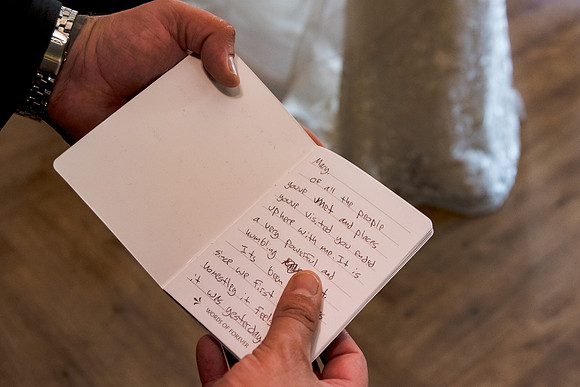 Meg,
of all the people
you've met and places
you've visited you ended
up here with me. It is
a very powerful and
humbling
Its been
since we first
honestly it feels
it was yesterday
WORDS OF FOREVER